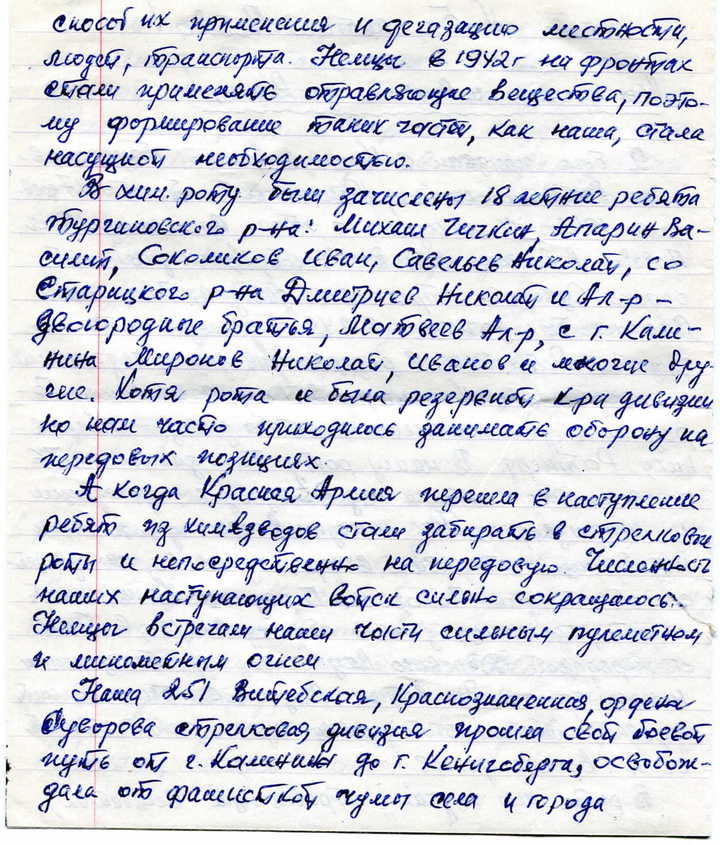 способ их применения и дегазацию местности,
людей, транспорта. Немцы в 1942г на фронтах
стали применять отравляющие вещества, поэто-
му формирование таких частей, как наша, стала
насущной необходимостью.
В хим. роту были зачислены 18 летние ребята
Тургиновского р-на: Михаил Чичкин, Апарин Ва-
силий, Соколиков Иван, Савельев Николай, со
Старицкого р-на Дмитриев Николай и Ал-р -
двоюродные братья, Матвеев Ал-р, с г. Кали-
нина Миронов Николай, Иванов и многие дру-
гие. Хотя рота и была резервной к-ра дивизии
но нам часто приходилось занимать оборону на
передовых позициях.
А когда Красная Армия перешла в наступление
ребят из химвзводов стали забирать в стрелковые
роты и непосредственно на передовую. Численность
наших наступающих войск сильно сокращалось.
Немцы встречали наши части сильным пулеметном
и минометным огнем
Наша 251 Витебская, Краснознаменная, ордена
Суворова стрелковая дивизия прошла свой боевой
путь от г. Калинины до г. Кенигсберга, освобож-
дала от фашисткой чумы села и города